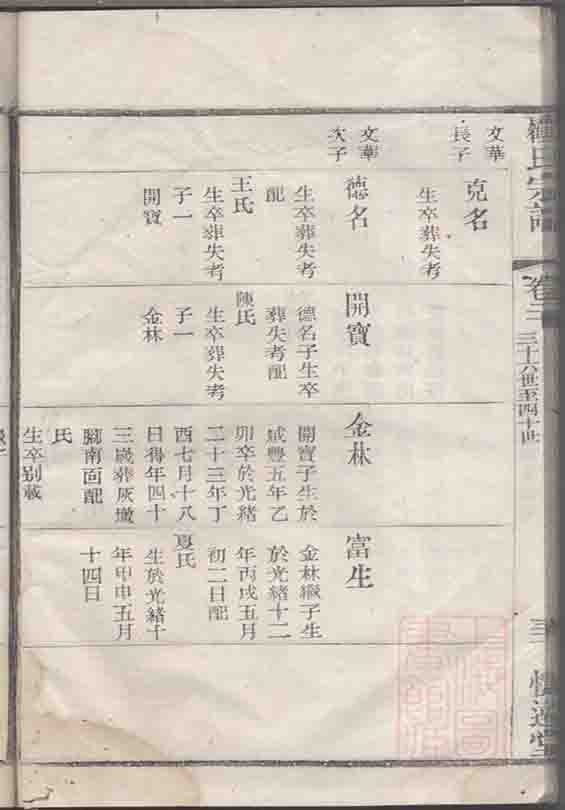 氏宗譜
卷二 三十六世至四十世
文華
長子
克名
生卒葬失考
文華
次子
德名
生卒葬失考
配
王氏
生卒葬失考
子一
開寶
開寶
德名子生卒
葬失考配
陳氏
生卒葬失考
子一
金林
金林
開寶子生於
咸豐五年乙
卯卒於光緒
二十三年丁
酉七月十八
日得年四十
三歲葬灰墩
腳南面配
氏
生卒别載
富生
金林繼子生
於光緒十二
年丙戌五月
初二日配
夏氏
生於光緒十
年甲申五月
十四日